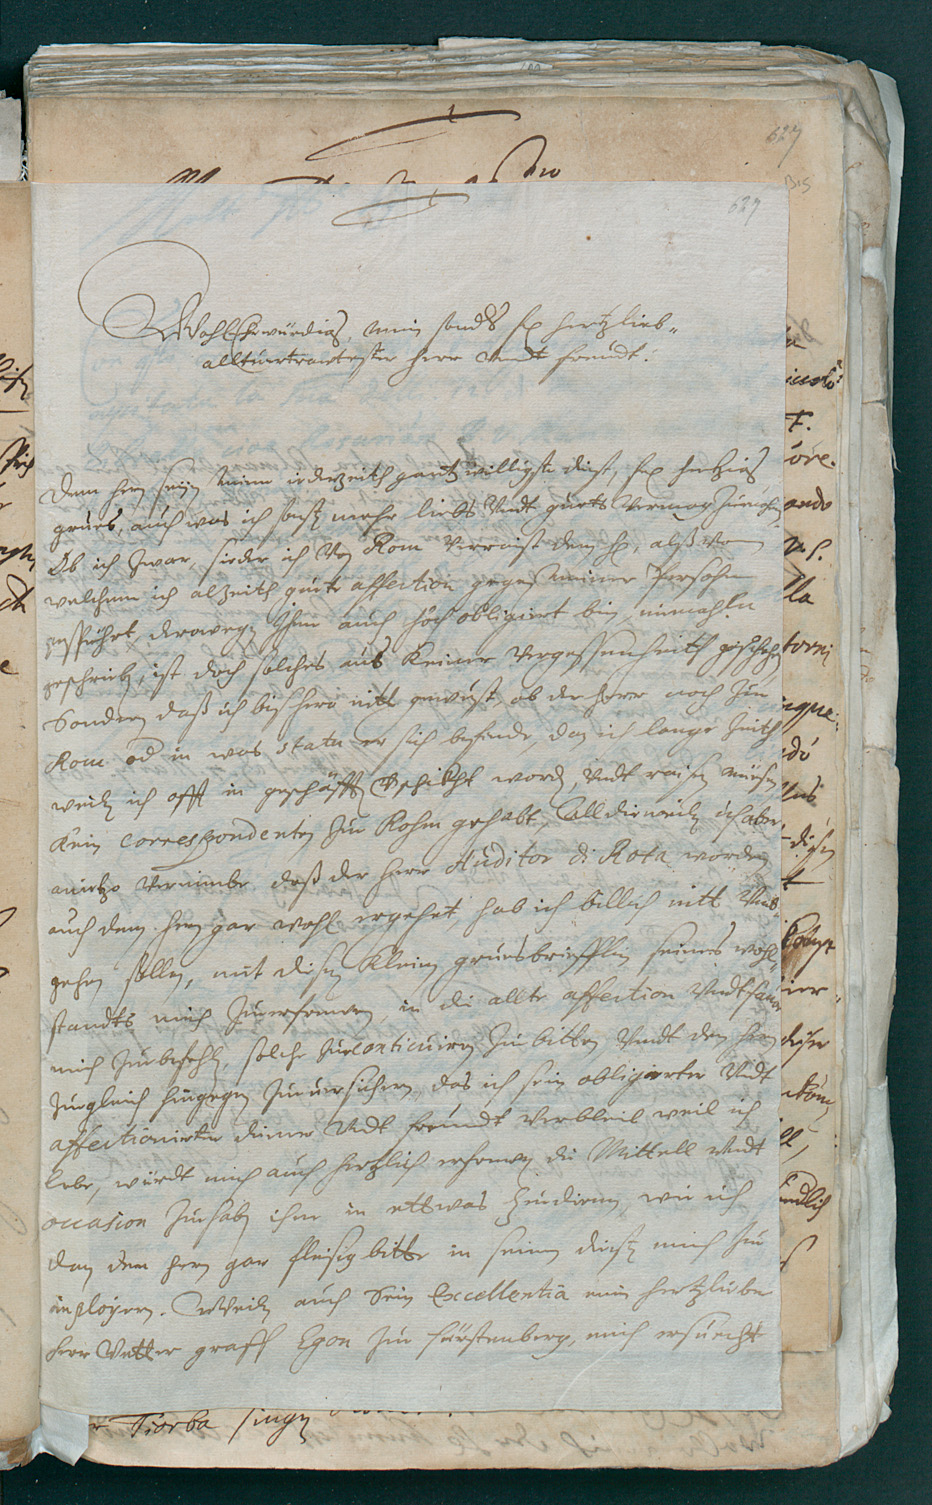 627
627
WohlEhrwürdig, mein sonders hertzlieb-
alltvertrawtester herr undt freundt.
Dem hern seyn meine iederzeith gantz willigste dienst, hertzigs
grues, auch was ich sonst mehr liebs undt guets vermag zuvor
Ob ich zwar, sieder ich von Rom verraist dem H. alß von
welchem ich alzeith guete affection gegen meiner Persohn
gespührt, derowegen Ihme auch hoch obligiert bin, niemahln
geschrieben, ist doch solches aus keiner vergessenheith geschehen,
Sondern daß ich bishero nitt gewust, ob der herr noch zu
Rom od in was statu er sich befinde, den ich lange Zeith
weilen ich offt in geschäfften verschikht worden, undt raisen müesen
kein correspondenten zu Rohm gehabt, Alldieweiln ich aber
anietzo vernimbe daß der herr Auditor di Rota worden
auch dem hern gar wohl ergehet, hab ich billich nitt umb-
gehen sollen, mit disem kleinen gruesbriefflin seines wohl-
standts mich zuerfrewen, in die allte affection undt favor
mich zubefehlen, solche zu continuiren zu bitten undt den hern
zugleich hingegen zuuersichern, das ich sein obligierter undt
affectionierter diener undt freundt verbleib weil ich
lebe, würdt mich auch hertzlich erfrewen die Mittell undt
occasion zuhaben ihme in ettwas zudienen, wie ich
dan den hern gar fleisig bitte in seinen dienst mich zu
imployren. Weiln auch Sein Excellentia mein hertzlieber
herr Vetter graff Egon zu fürstenberg, mich ersuecht
Tiorba singen